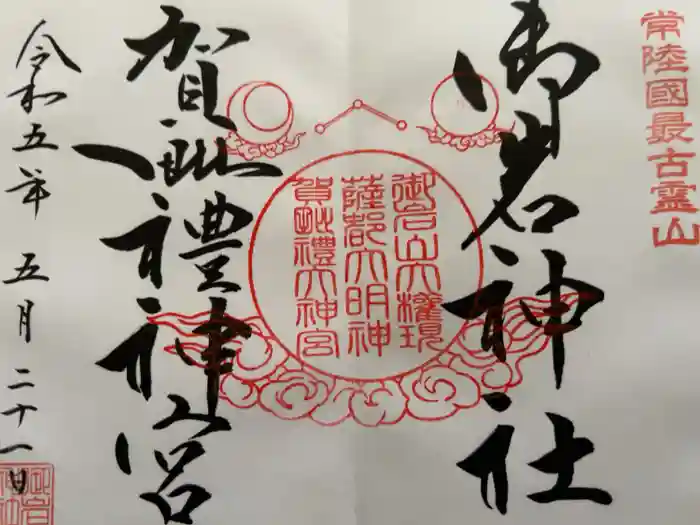 常陸國最古霊山
御岩神社
御岩山大権現
薩都大明神
賀毗禮大神宮
賀毗禮神宮
令和五年 五月二十一日
御岩
神社